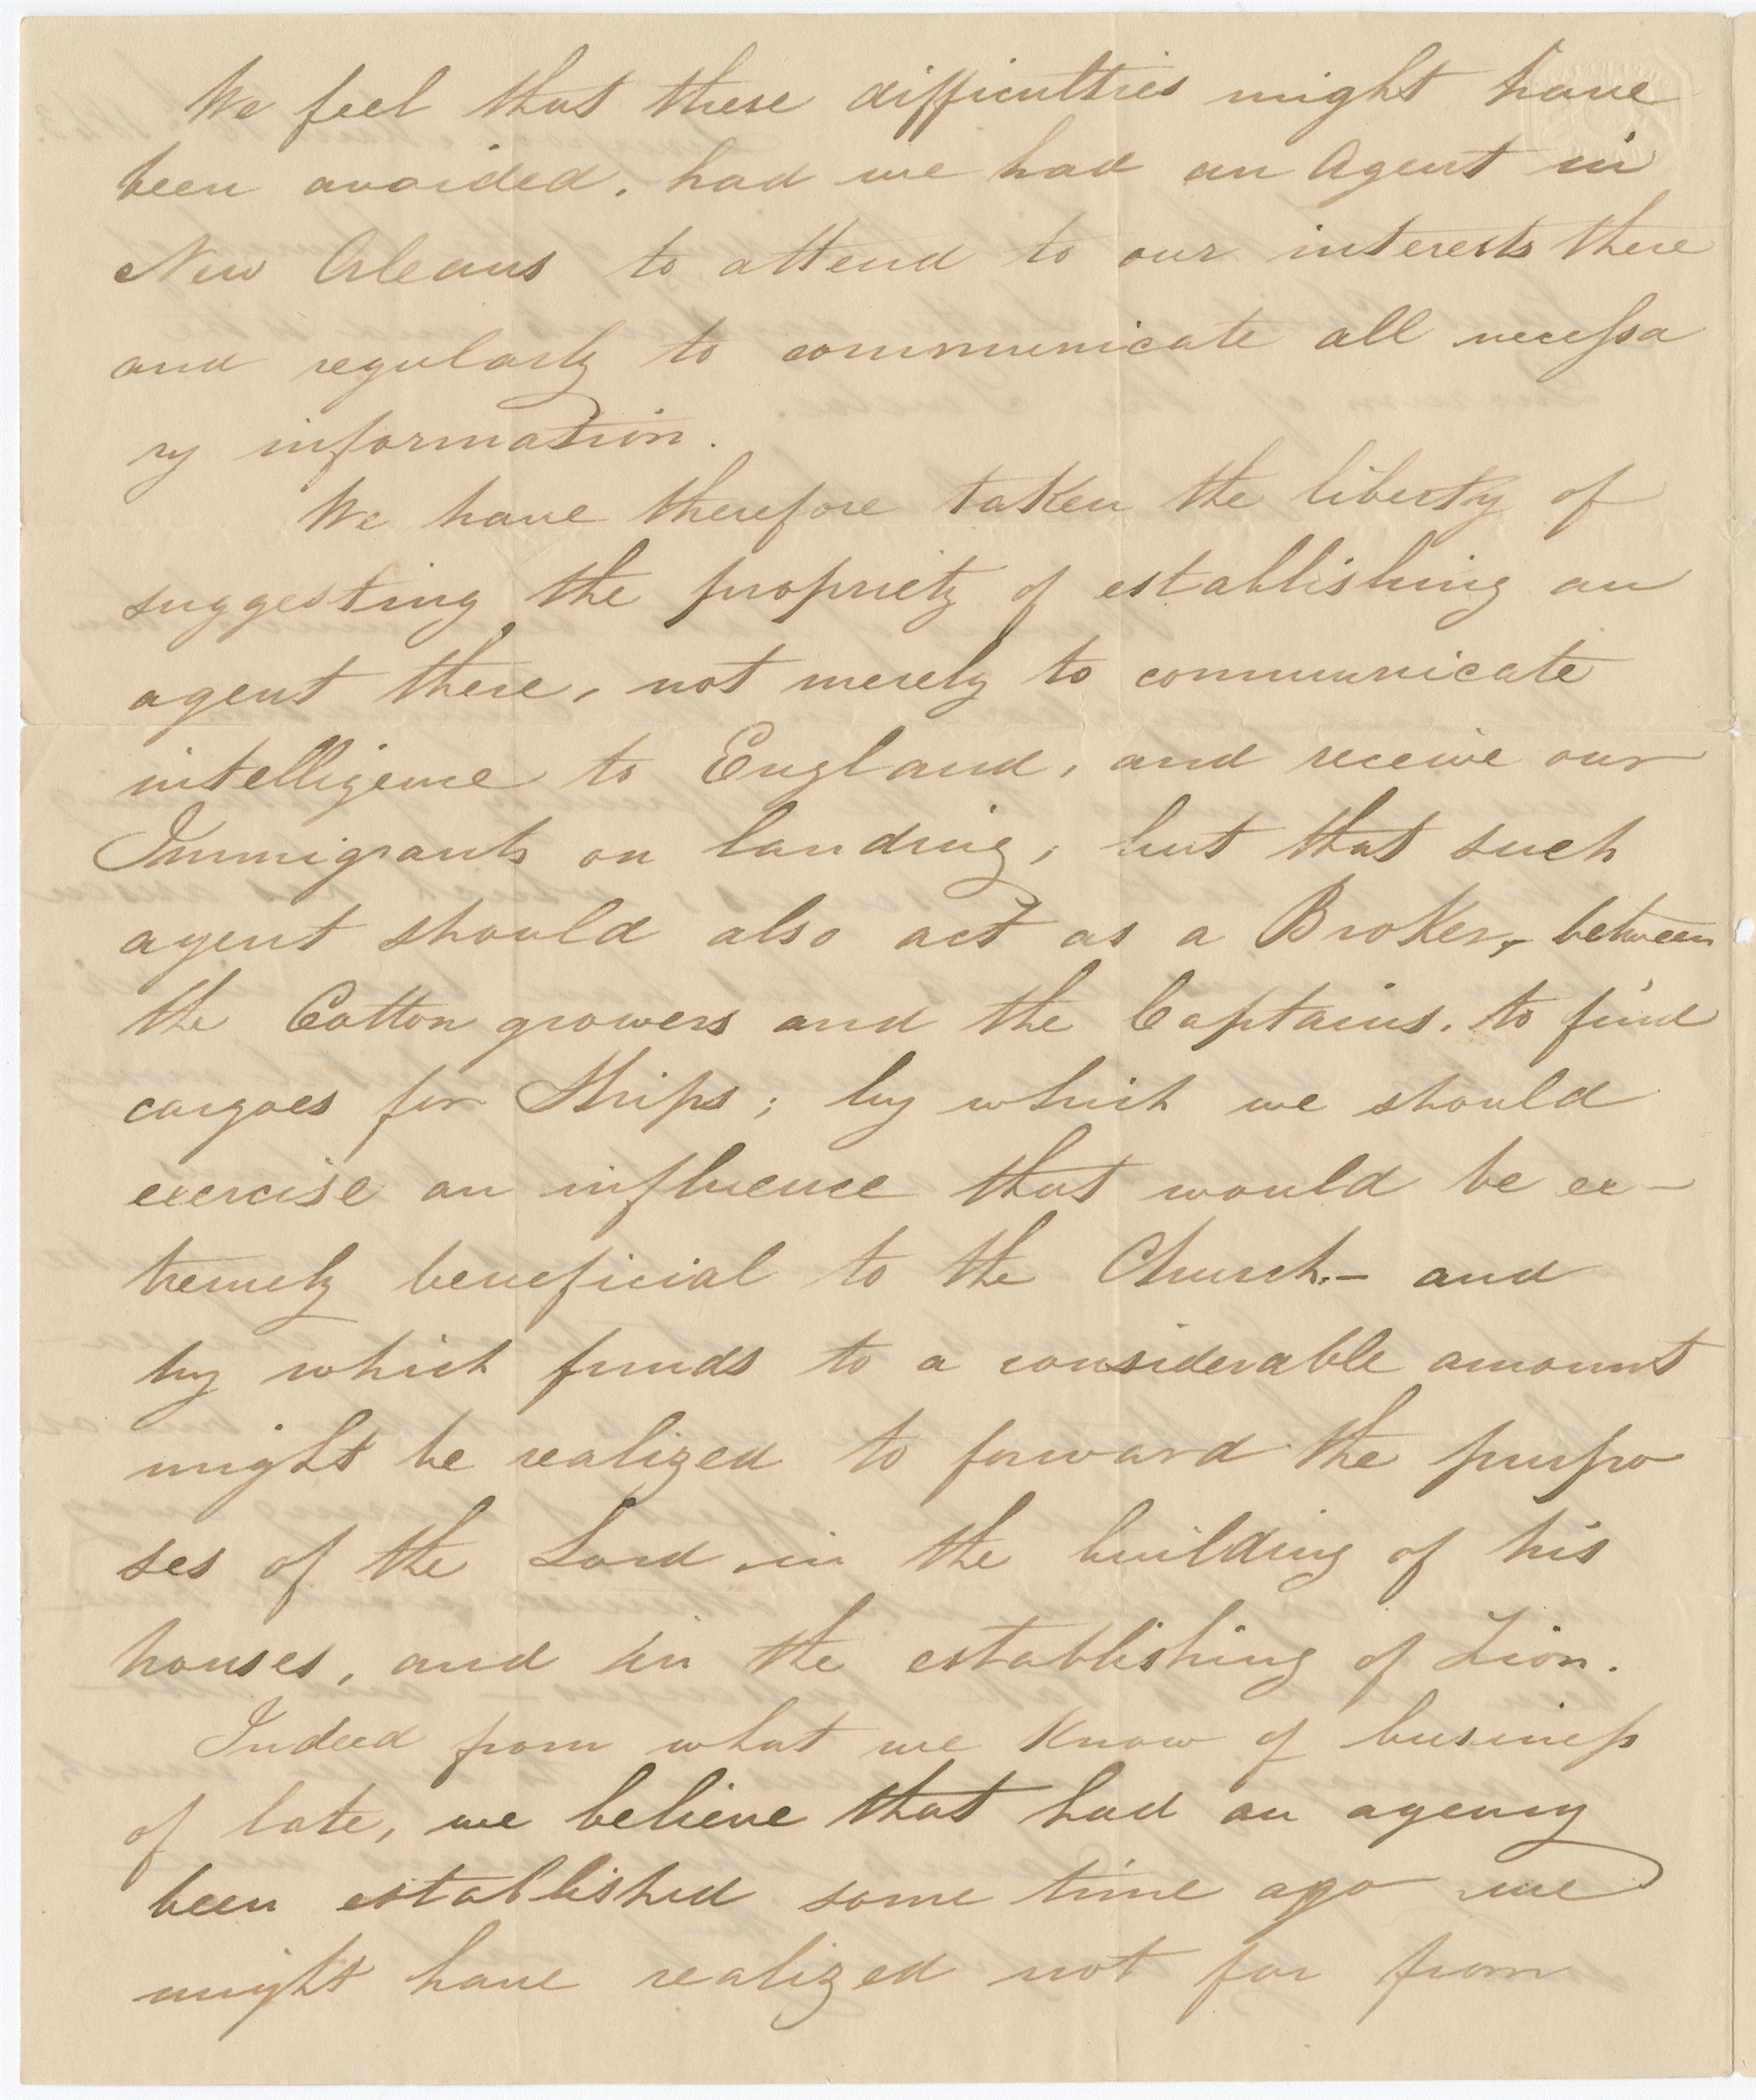 We feel that these difficulties might have
been avoided, had we had an Agent in
New Orleans to attend to our interests there
and regularly to communicate all necessa
ry information.
We have therefore taken the liberty of
suggesting the propriety of establishing an
agent there, not merely to communicate
intelligence to England, and receive our
Immigrants on landing, but that such
agent should also act as a Broker, between
the Cotton growers and the Captains. to find
cargoes for Ships; by which we should
exercise an influence that would be ex-
tremely beneficial to the Church,- and
by which funds to a considerable amount
might be realized to forward the purpo
ses of the Lord in the building of his
houses, and in the establishing of Zion.
Indeed from what we know of business
of late, we believe that had an agency
been established some time ago we
might have realized not far from